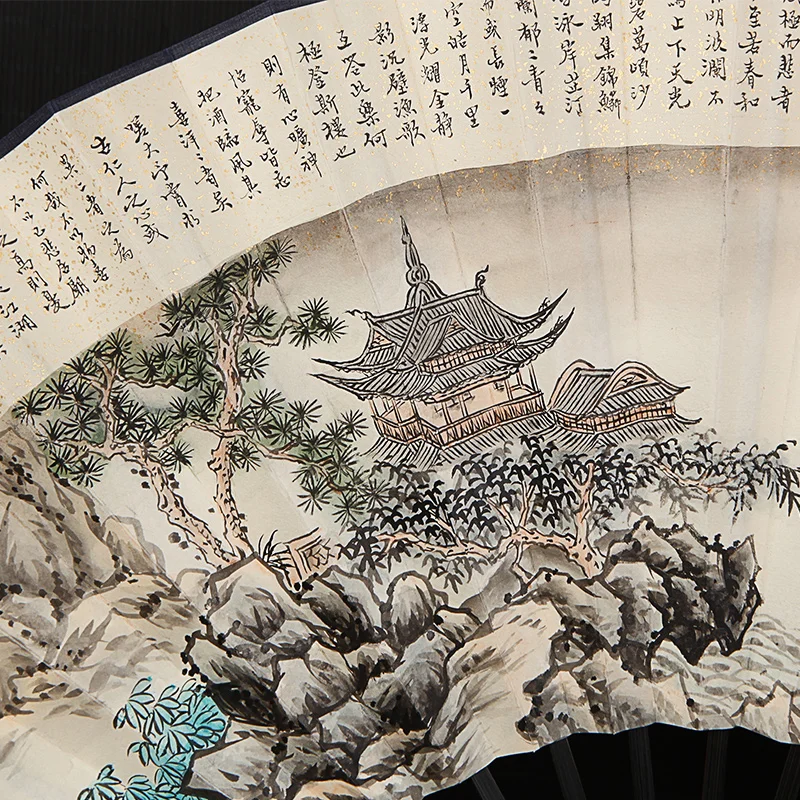 極而悲者
至若春和
明波瀾不
上下天光
碧萬頃沙
翔集錦鱗
泳岸芷汀
蘭郁々青々
而或長煙一
空皓月千里
浮光耀金靜
影沉璧漁歌
互答此樂何
極登斯樓也
則有心曠神
怡寵辱皆忘
把酒臨風其
喜洋々者矣
嗟夫予嘗求
古仁人之心或
異二者之為
何哉不以物喜
不以己悲居廟
之高則憂
江湖